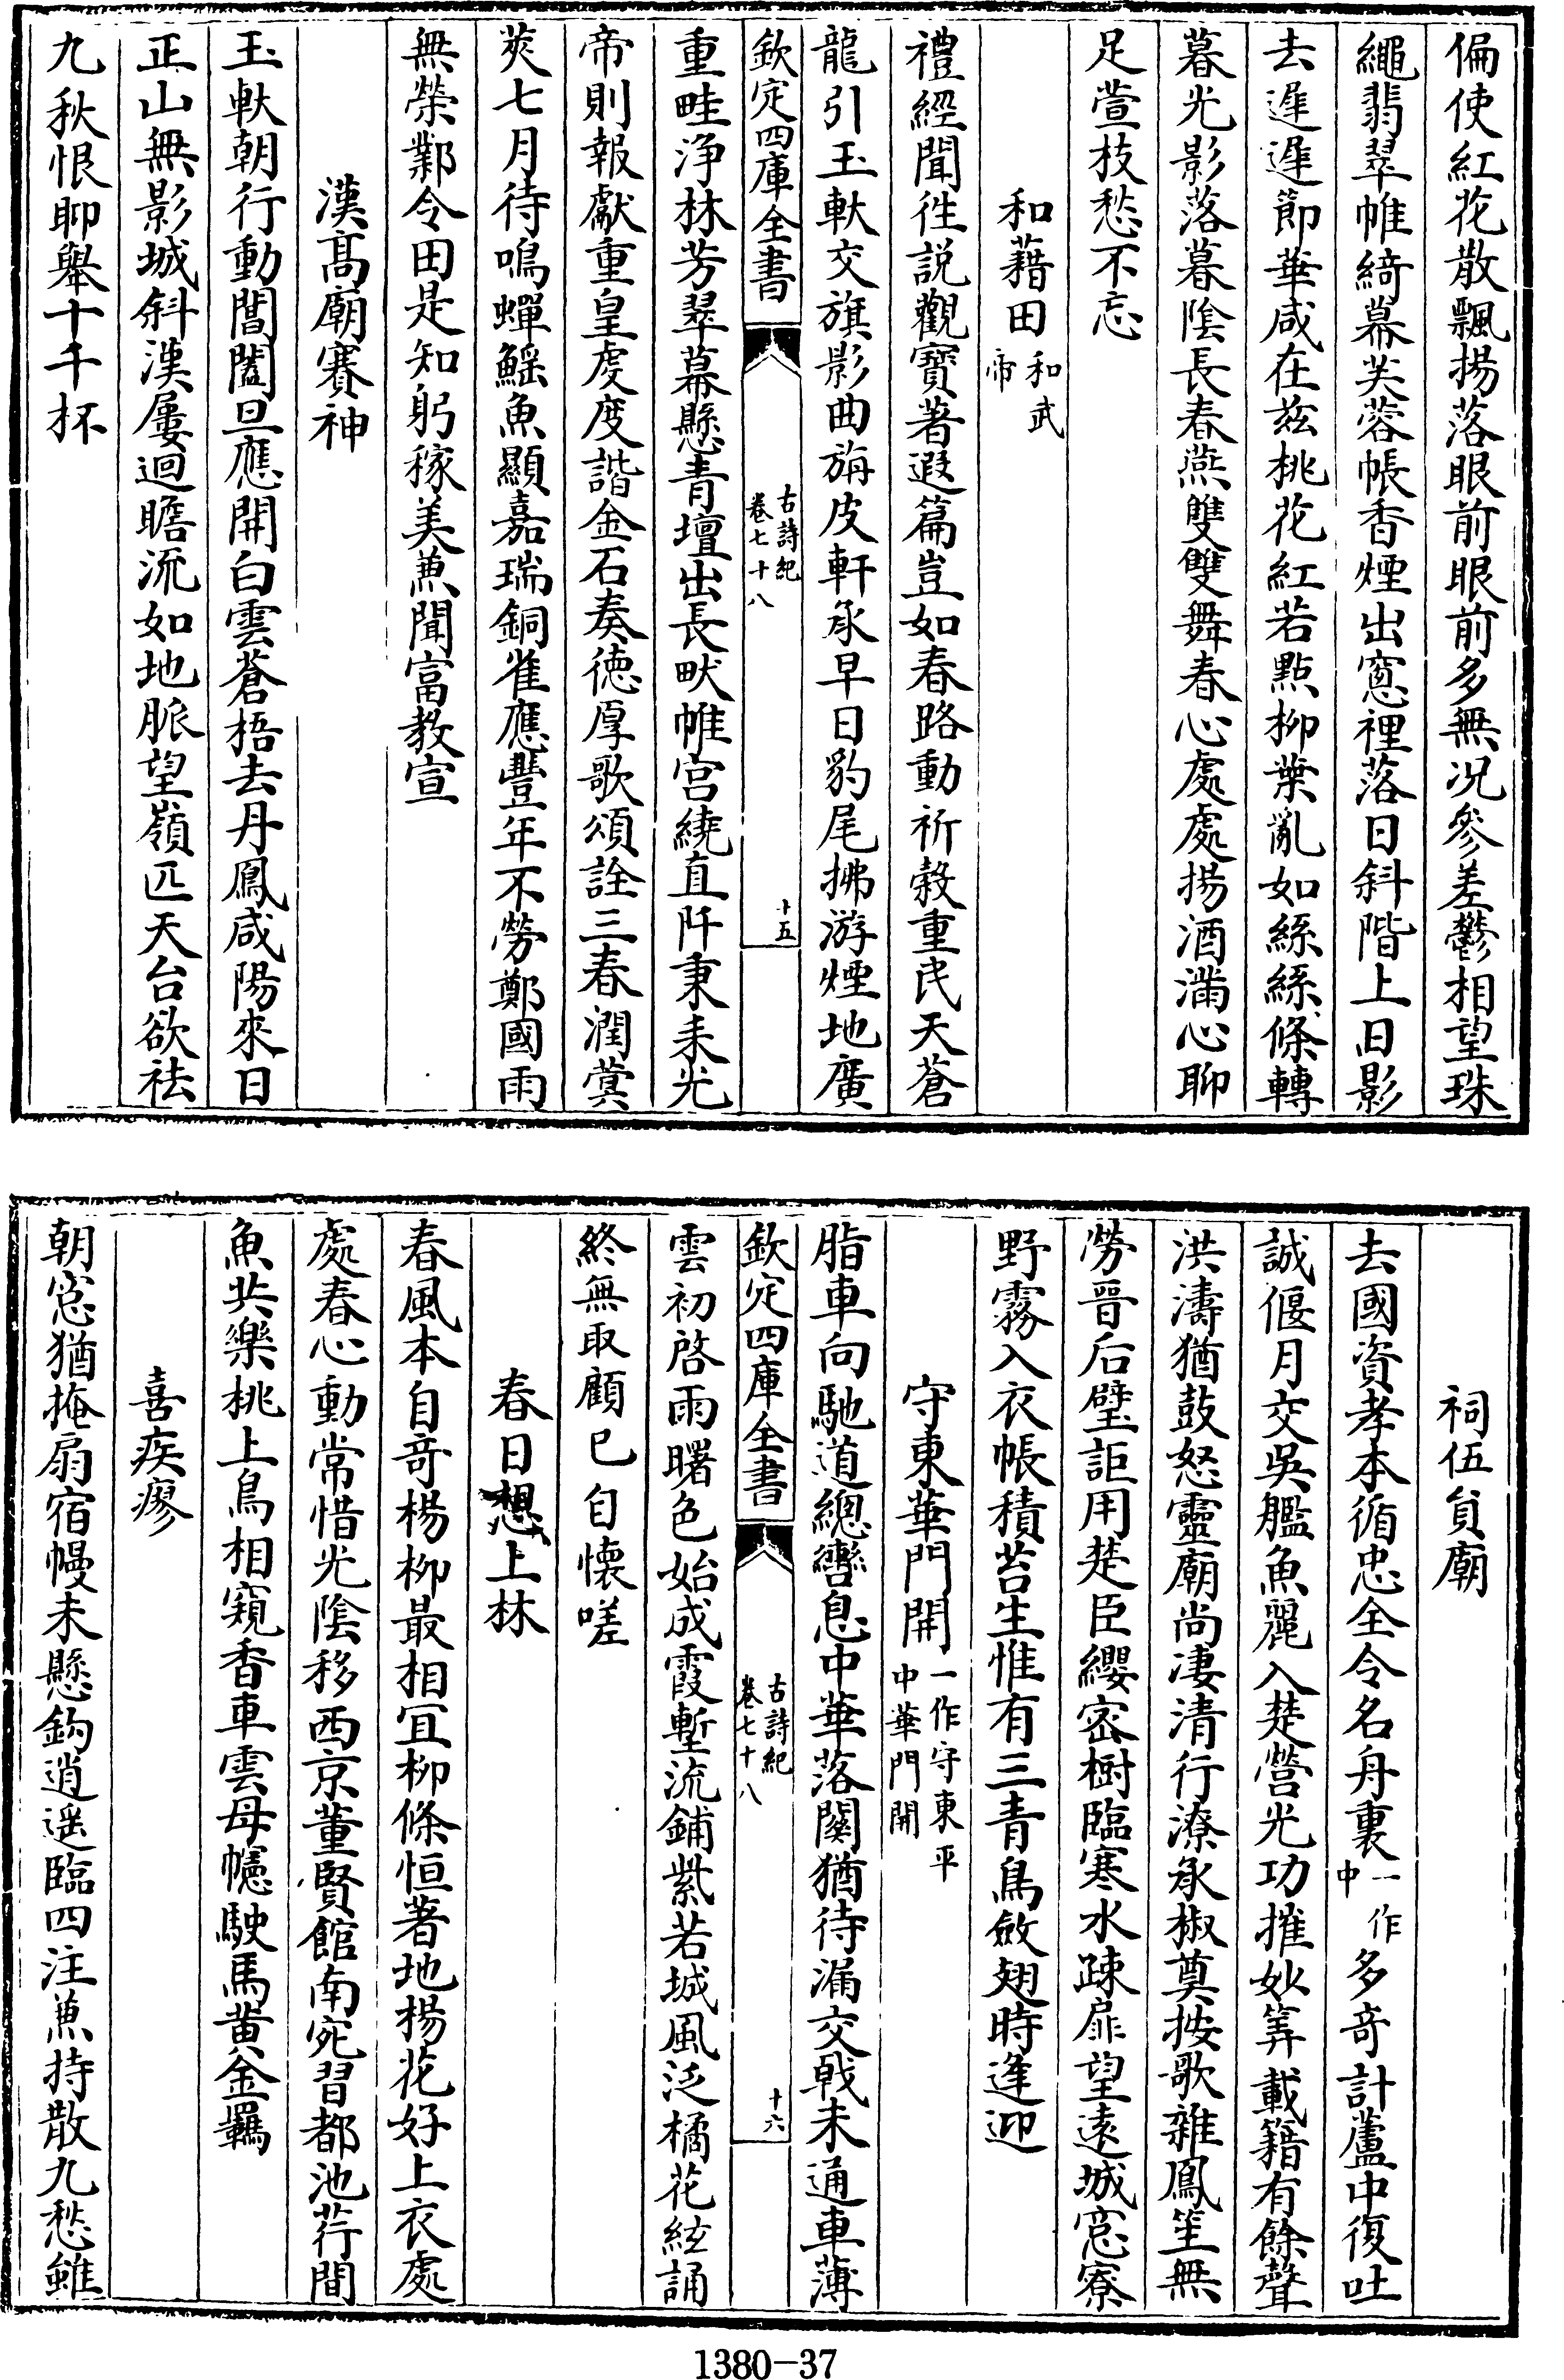 偏使紅花散飄揚落眼前眼前多無况參差鬱相望珠
繩翡翠帷綺幕芙蓉帳香煙出窻裡落日斜階上日影
去遲遲節華咸在兹桃花紅若點柳葉亂如絲絲條轉
暮光影落暮陰長春燕雙雙舞春心處處揚酒滿心聊
足萱枝愁不忘
和藉田和武帝
禮經聞徃説觀寶著遐篇豈如春路動祈穀重民天蒼
龍引玉軑交旗影曲旃皮軒承早日豹尾拂游煙地廣
欽定四庫全書
古詩紀
卷七十八
十五
重畦浄林芳翠幕懸青壇出長畎帷宫繞直阡秉耒光
帝則報獻重皇䖍度諧金石奏德厚歌頌詮三春潤蓂
莢七月待鳴蟬鰩魚顯嘉瑞銅雀應豐年不勞鄭國雨
無榮鄴令田是知躬稼美兼聞富教宣
漢髙廟賽神
玉軑朝行動閶闔旦應開白雲蒼梧去丹鳳咸陽來日
正山無影城斜漢屢迴瞻流如地脈望嶺匹天台欲祛
九秋恨聊舉十千杯
祠伍員廟
去國資孝本循忠全令名舟裏一作中多奇計蘆中復吐
誠偃月交吳艦魚麗入楚營光功摧妙筭載籍有餘聲
洪濤猶鼓怒靈廟尚凄清行潦承椒奠按歌雜鳳笙無
勞晉后璧詎用楚臣纓宻樹臨寒水疎扉望逺城窻寮
野霧入衣帳積苔生惟有三青鳥斂翅時逢迎
守東華門開一作守東平中華門開
脂車向馳道總轡息中華落闕猶待漏交戟未通車薄
欽定四庫全書
古詩紀
卷七十八
十六
雲初啓雨曙色始成霞塹流鋪紫若城風泛橘花紘誦
終無取顧已自懐嗟
春日想上林
春風本自奇楊柳最相宜柳條恒著地楊花好上衣處
處春心動常惜光隂移西京董賢館南宛習都池荇間
魚共樂桃上鳥相窺香車雲母幰駛馬黄金羈
喜疾瘳
朝窓猶掩扇宿幔未懸鈎逍遥臨四注兼持散九愁雖
1380-37